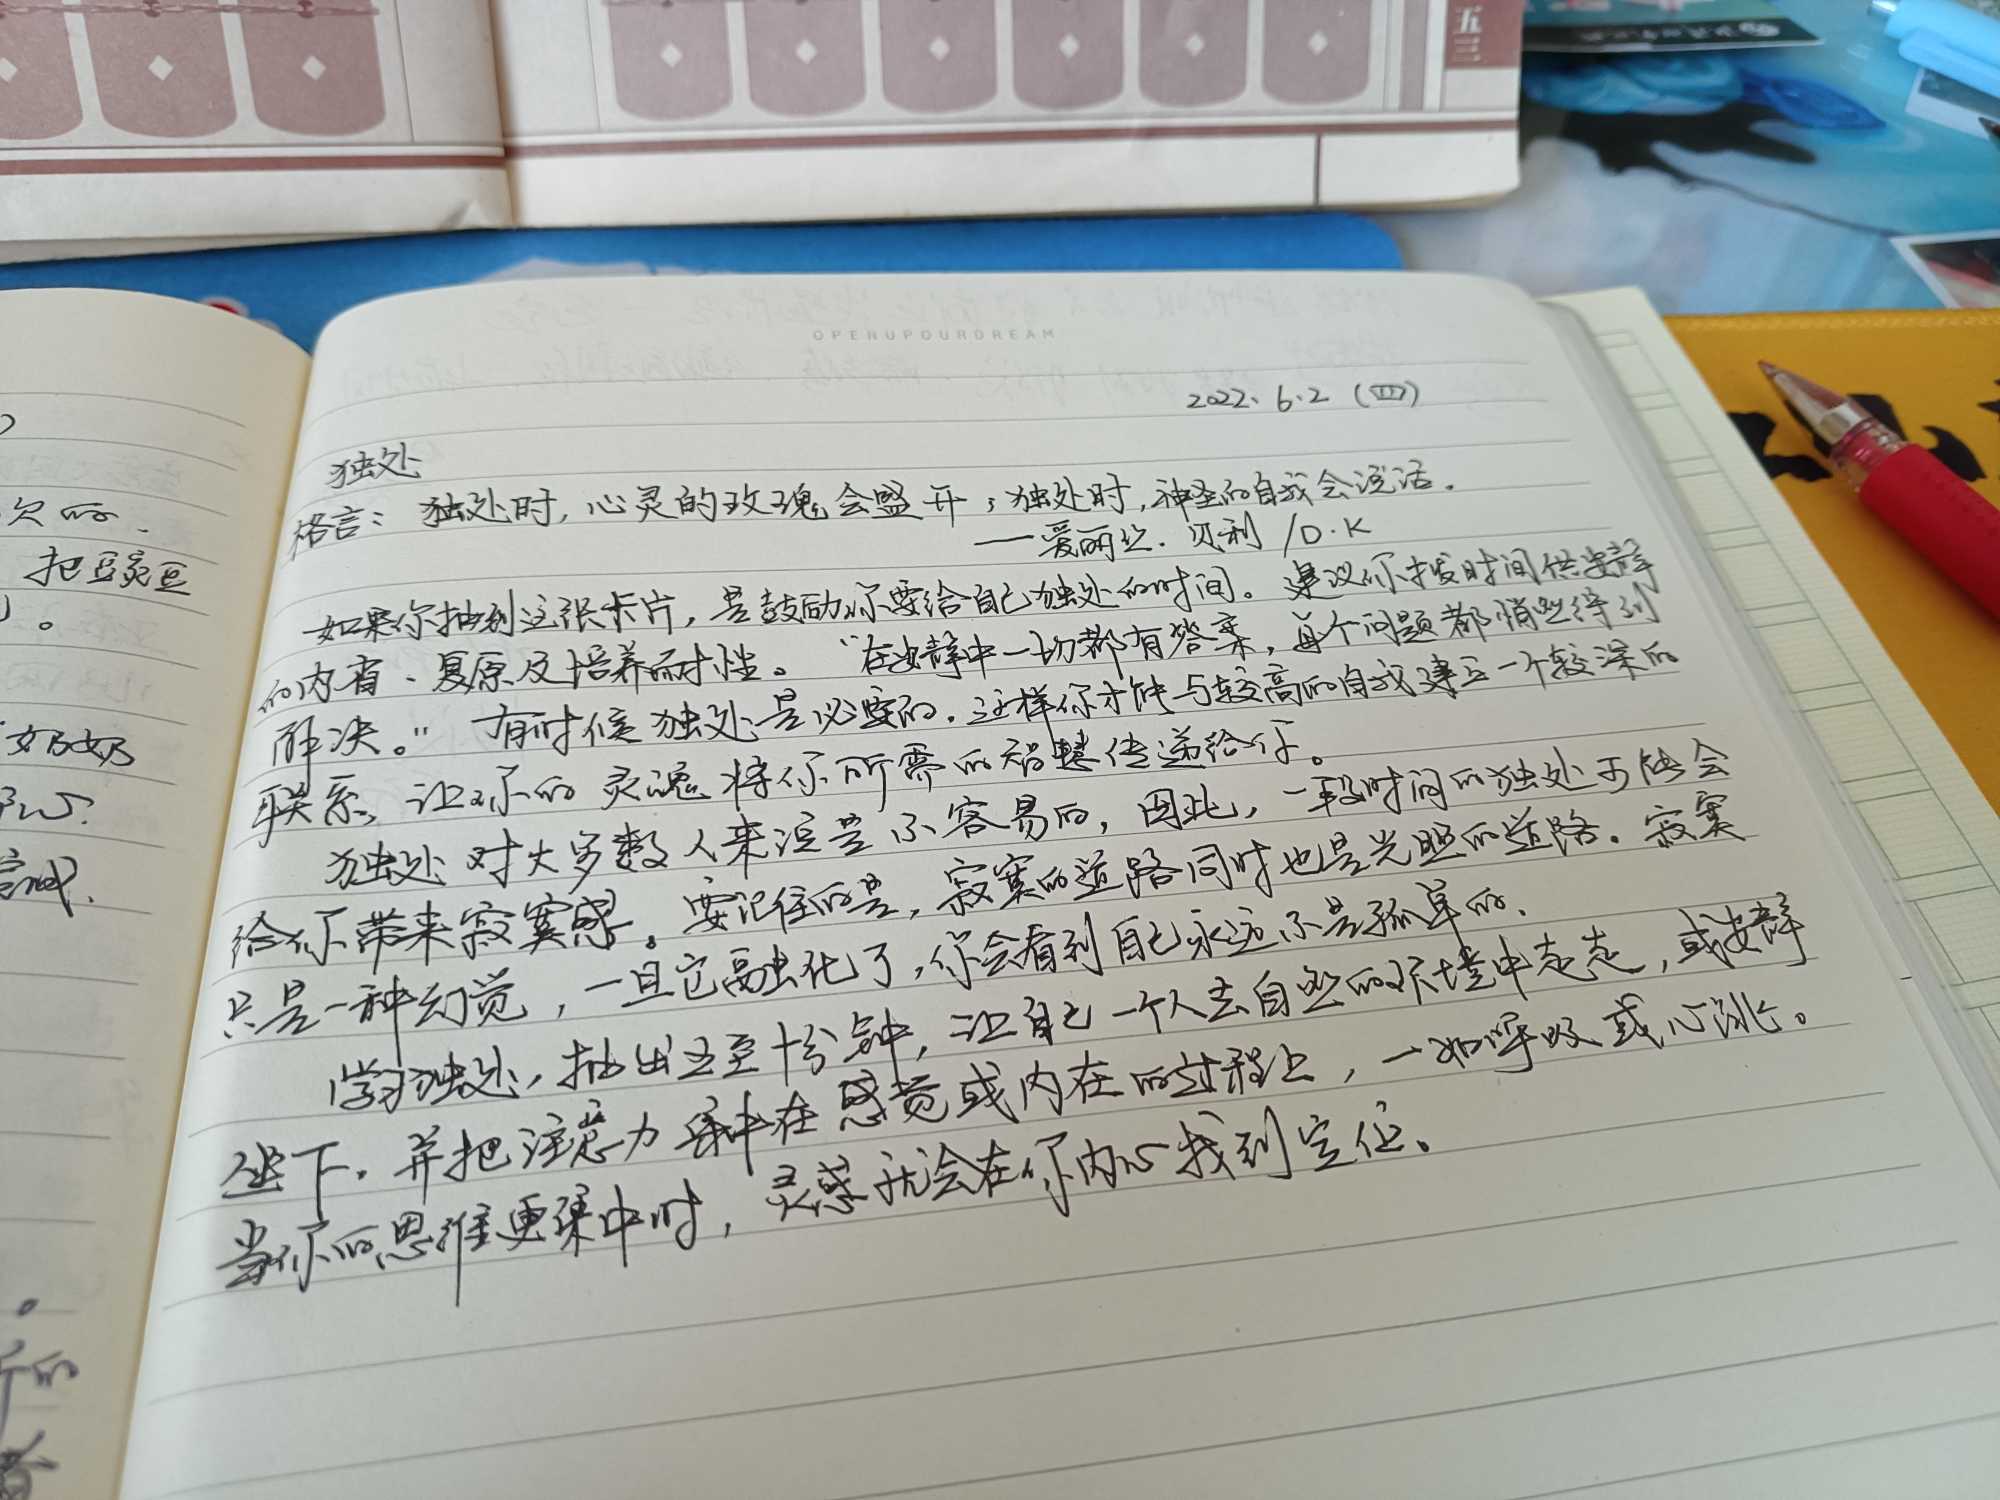 五三
OPENUPOURDREAM
2022.6.2 (四)
独处
格言：独处时，心灵的玫瑰会盛开；独处时，神圣的自我会说话.
——爱丽丝.贝利 /D.K
如果你抽到这张卡片，是鼓励你要给自己独处的时间。建议你拨时间供安静
的内省、复原及培养耐性。“在安静中一切都有答案，每个问题都悄然得到
解决。”有时候独处是必要的.这样你才能与较高的自我建立一个较深的
联系，让你的灵魂将你所需的智慧传递给你。
独处对大多数人来说是不容易的，因此，一段时间的独处可能会
给你带来寂寞感。要记住的是，寂寞的道路同时也是光照的道路。寂寞
只是一种幻觉，一旦它融化了，你会看到自己永远不是孤单的.
学习独处，抽出五至十分钟，让自己一个人去自然的环境中走走，或安静
坐下.并把注意力集中在感觉或内在的过程上，一如呼吸或心跳。
当你的思维更集中时，灵感就会在你内心找到定位。
欠的.
把豌豆
。
奶奶